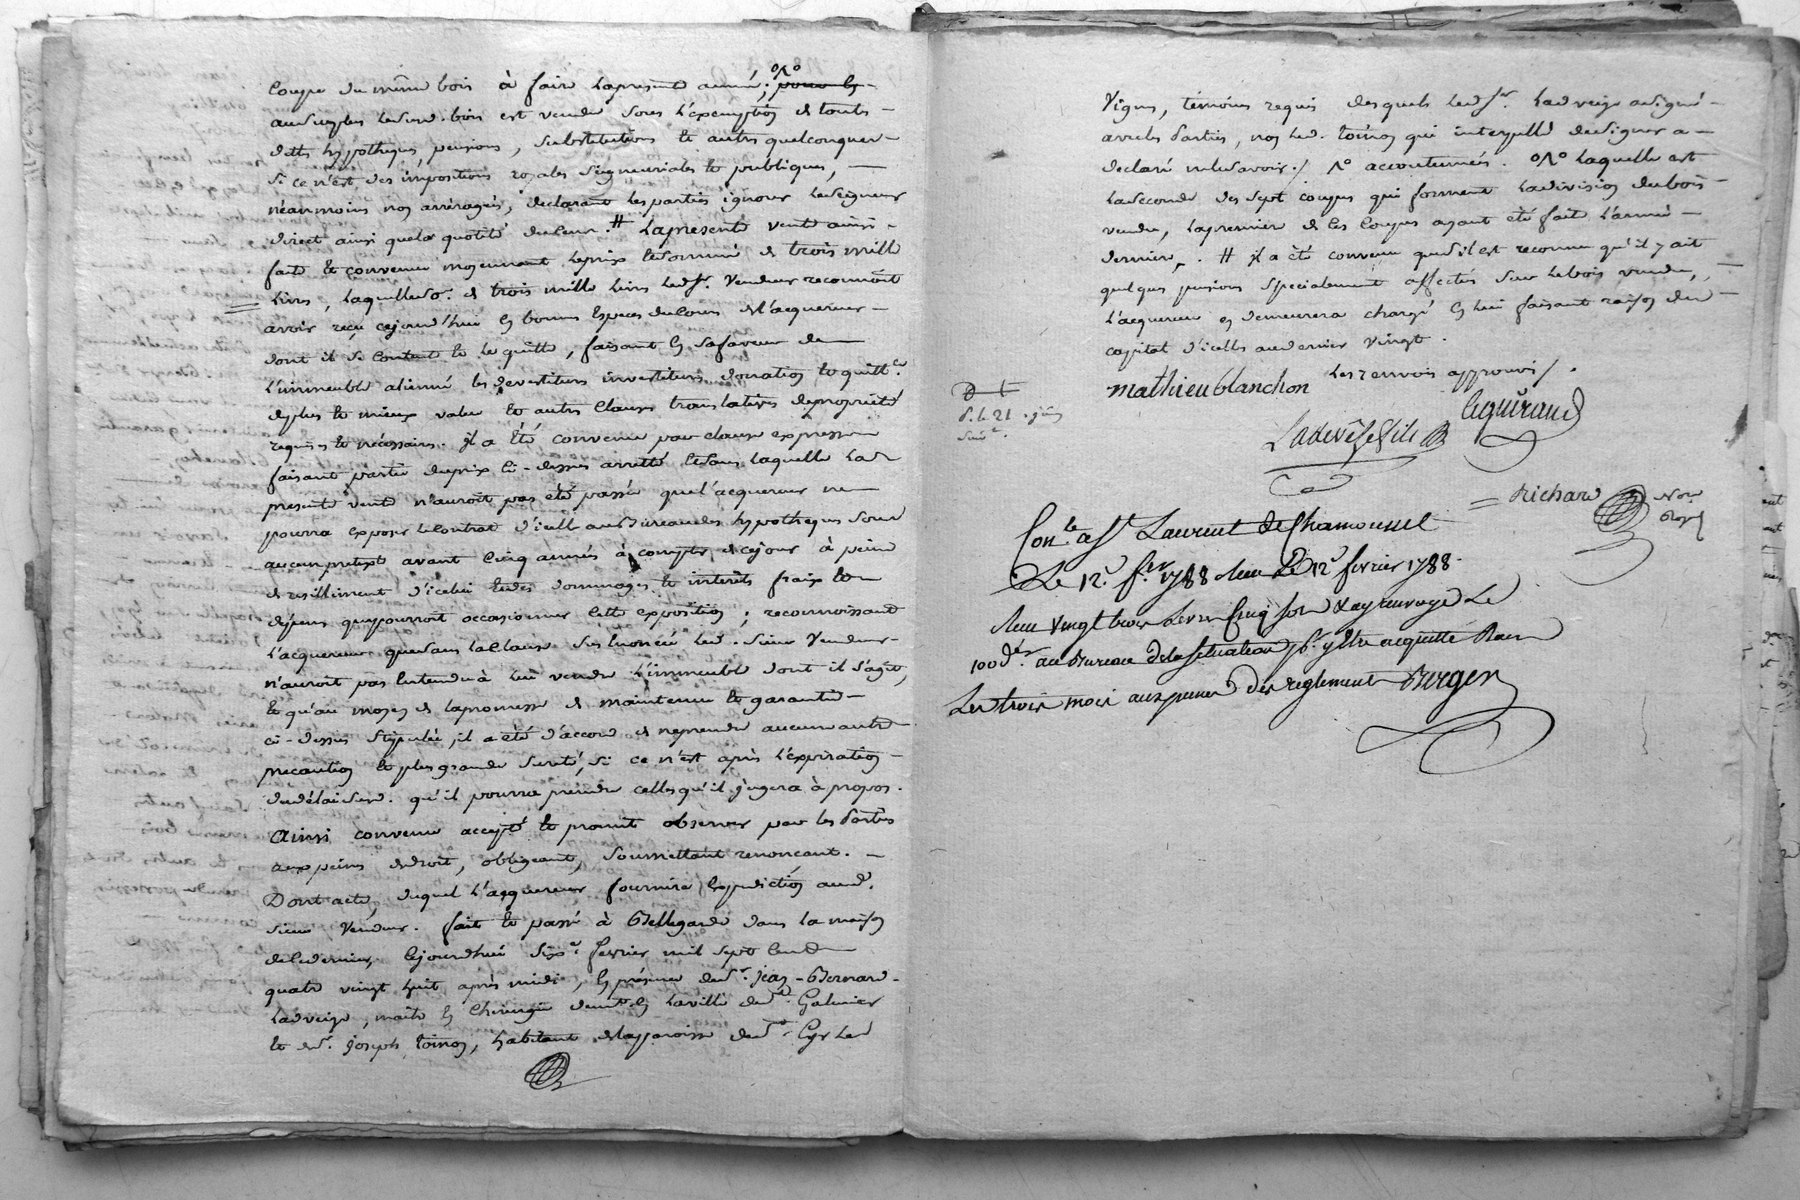 Coupe du même bois à faire la presente année,
au surplus led. surd. bois est vendu sous l'exemption de touts
dettes hypotheques, pensions, substitutions et autres quelconques
si ce n'est des impositions royales seigneuriales et publiques,
néanmoins non arréragés, declarant les parties ignorer le seigneur
direct ainsi que la quotité du cens. # La presente vente ainsi
faite et convenue moyennant le prix et somme de trois mille
livres, laquelle so.e de trois mille livres led. sr. Vendeur reconnoit
avoir reçu cejourd'hui en bonnes especes du cours de l'acquereur
dont il se contente et le quitte, faisant en sa faveur de
l'immeuble aliené les devestitures investitures donation et quitt.ce
de plus et mieux value et autres clauses translatives de proprieté
requises et nécessaires. il a été convenu par clause expresse
faisant partie du prix ci-dessus arretté et sans laquelle la
presente vente n'auroit pas été passée que l'acquereur ne
pourra exposer le contrat d'icelle au Bureau des hypotheques sous
aucun pretexte avant cinq années à compter de cejour à peine
de resiliment d'icelui et des dommages et interets frais et
depens que pourroit occasionner cette exposition ; reconnoissant
l'acquereur que sans la clause sus enoncée led. sieur Vendeur
n'auroit pas entendu à lui vendre l'immeuble dont il s'agit,
et qu'au moyen de la promesse de maintenue et garantie
ci-dessus stipulée, il a été d'accord de ne prendre aucune autre
precaution et plus grande sureté, si ce n'est après l'expiration
du délai surd. qu'il pourra prendre celles qu'il jugera à propos.
Ainsi convenu accepté et promit observer par les parties
aux peines de droit, obligeant, soumettant renoncant.
Dont acte, duquel l'acquereur fournira expedition aud.
sieur Vendeur. fait et passé à Bellegarde dans la maison
de ce dernier, cejourdhui sixe. fevrier mil sept cent
quatre vingt huit après midi, en présence de sr. jean-Bernard
Ladveize, maitre en chirurgie demt. en la ville de st. Galmier
et de sr. joseph toinon, habitant de la parroisse de st. Cyr les
Vignes, témoins requis desquels led. sr. Ladveize a signé
avec les parties, non led. toinon qui interpellé de signer a
declaré ne le savoir ./. accoutumées. laquelle est
la seconde des sept coupes qui forment la division du bois
vendu, la premiere de ces coupes ayant été faite l'année
derniere. # il a été convenu que s'il est reconnu qu'il y ait
quelques pensions specialement affectés sur le bois vendu,
l'acquereur en demeurera chargé en lui faisant raison du
capital d'icelles au denier vingt.
Les renvois approuvés ./.
mathieu blanchon
Leguiraud
Richard Nore. Royal
Con.le a St Laurent de Chamousset
Le 12. fer. 1788 Reçu Le 12 fevrier 1788
Reçu vingt trois livres cinq sols
100 d.
Les trois mois aux peines des reglements Burgen